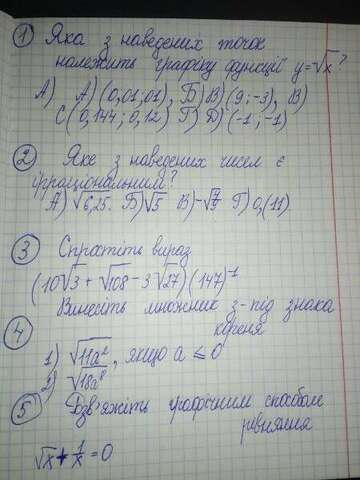 1 Яка з наведених точок
належить графіку функції y=-√x?
А) А)(0,01;01), Б) В)(9;-3), В)
С(0,144;0,12) Г) Д)(-1;-1)
2 Яке з наведених чисел є
ірраціональним?
А) √6,25. Б) √5 В) -√7/9 Г) 0,(11)
3 Спростіть вираз
(10√3 + √108 - 3√27)(147)⁻¹
4 Винесіть множник з-під знака
кореня
1) √11a², якщо a ≤ 0
2) √18a⁸
5 Розв'яжіть графічним способом
рівняння
√x + 1/x = 0